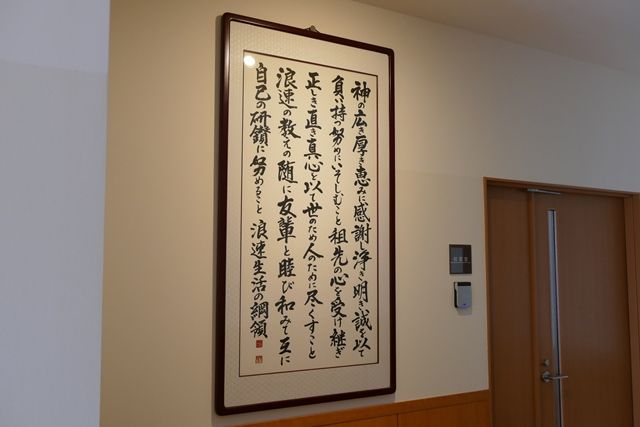 神の広き厚き恵みに感謝し浄き明き誠を以て
負い持つ努めにいそしむこと祖先の心を受け継ぎ
正しき直き真心を以て世のため人のために尽くすこと
浪速の教えの随に友輩と睦び和みて互に
自己の研鑽に努めること 浪速生活の綱領